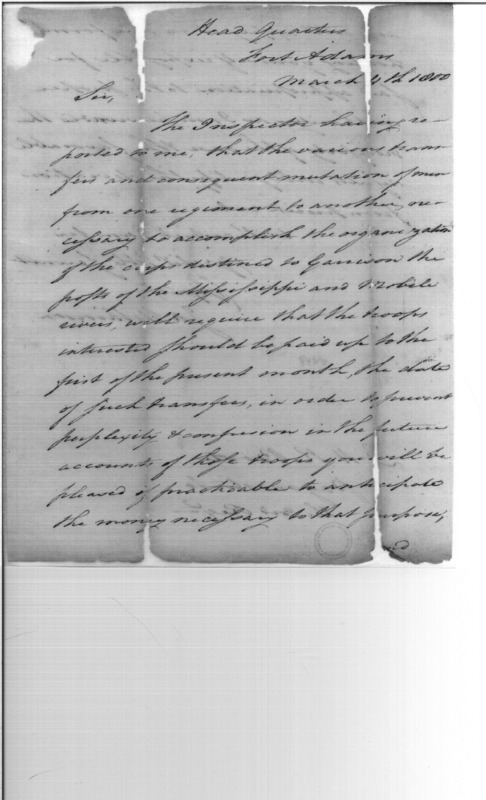 Head Quarters
Fort Adams
March 4th 1800
Sir,
The Inspector having re-
ported to me, that the various trans-
fers and consequent mutation of men
from one regiment to another, ne-
cessary to accomplish the organization
of the corps distined to Garrison the
posts of the Mississippi and Mobile
rivers, will require that the troops
interested should be paid up to the
first of the present month, the date
of such transfers, in order to prevent
perplexity & confusion in the future
accounts of those troops you will be
pleased if practicable to anticipate
the money necessary to that purpose,